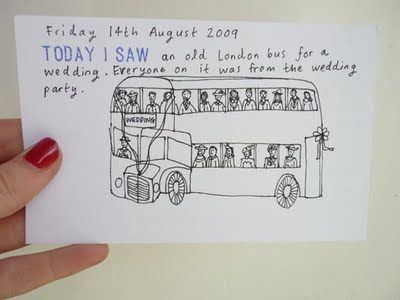 Friday 14th August 2009
TODAY I SAW an old London bus for a
wedding. Everyone on it was from the wedding
party.
WEDDING